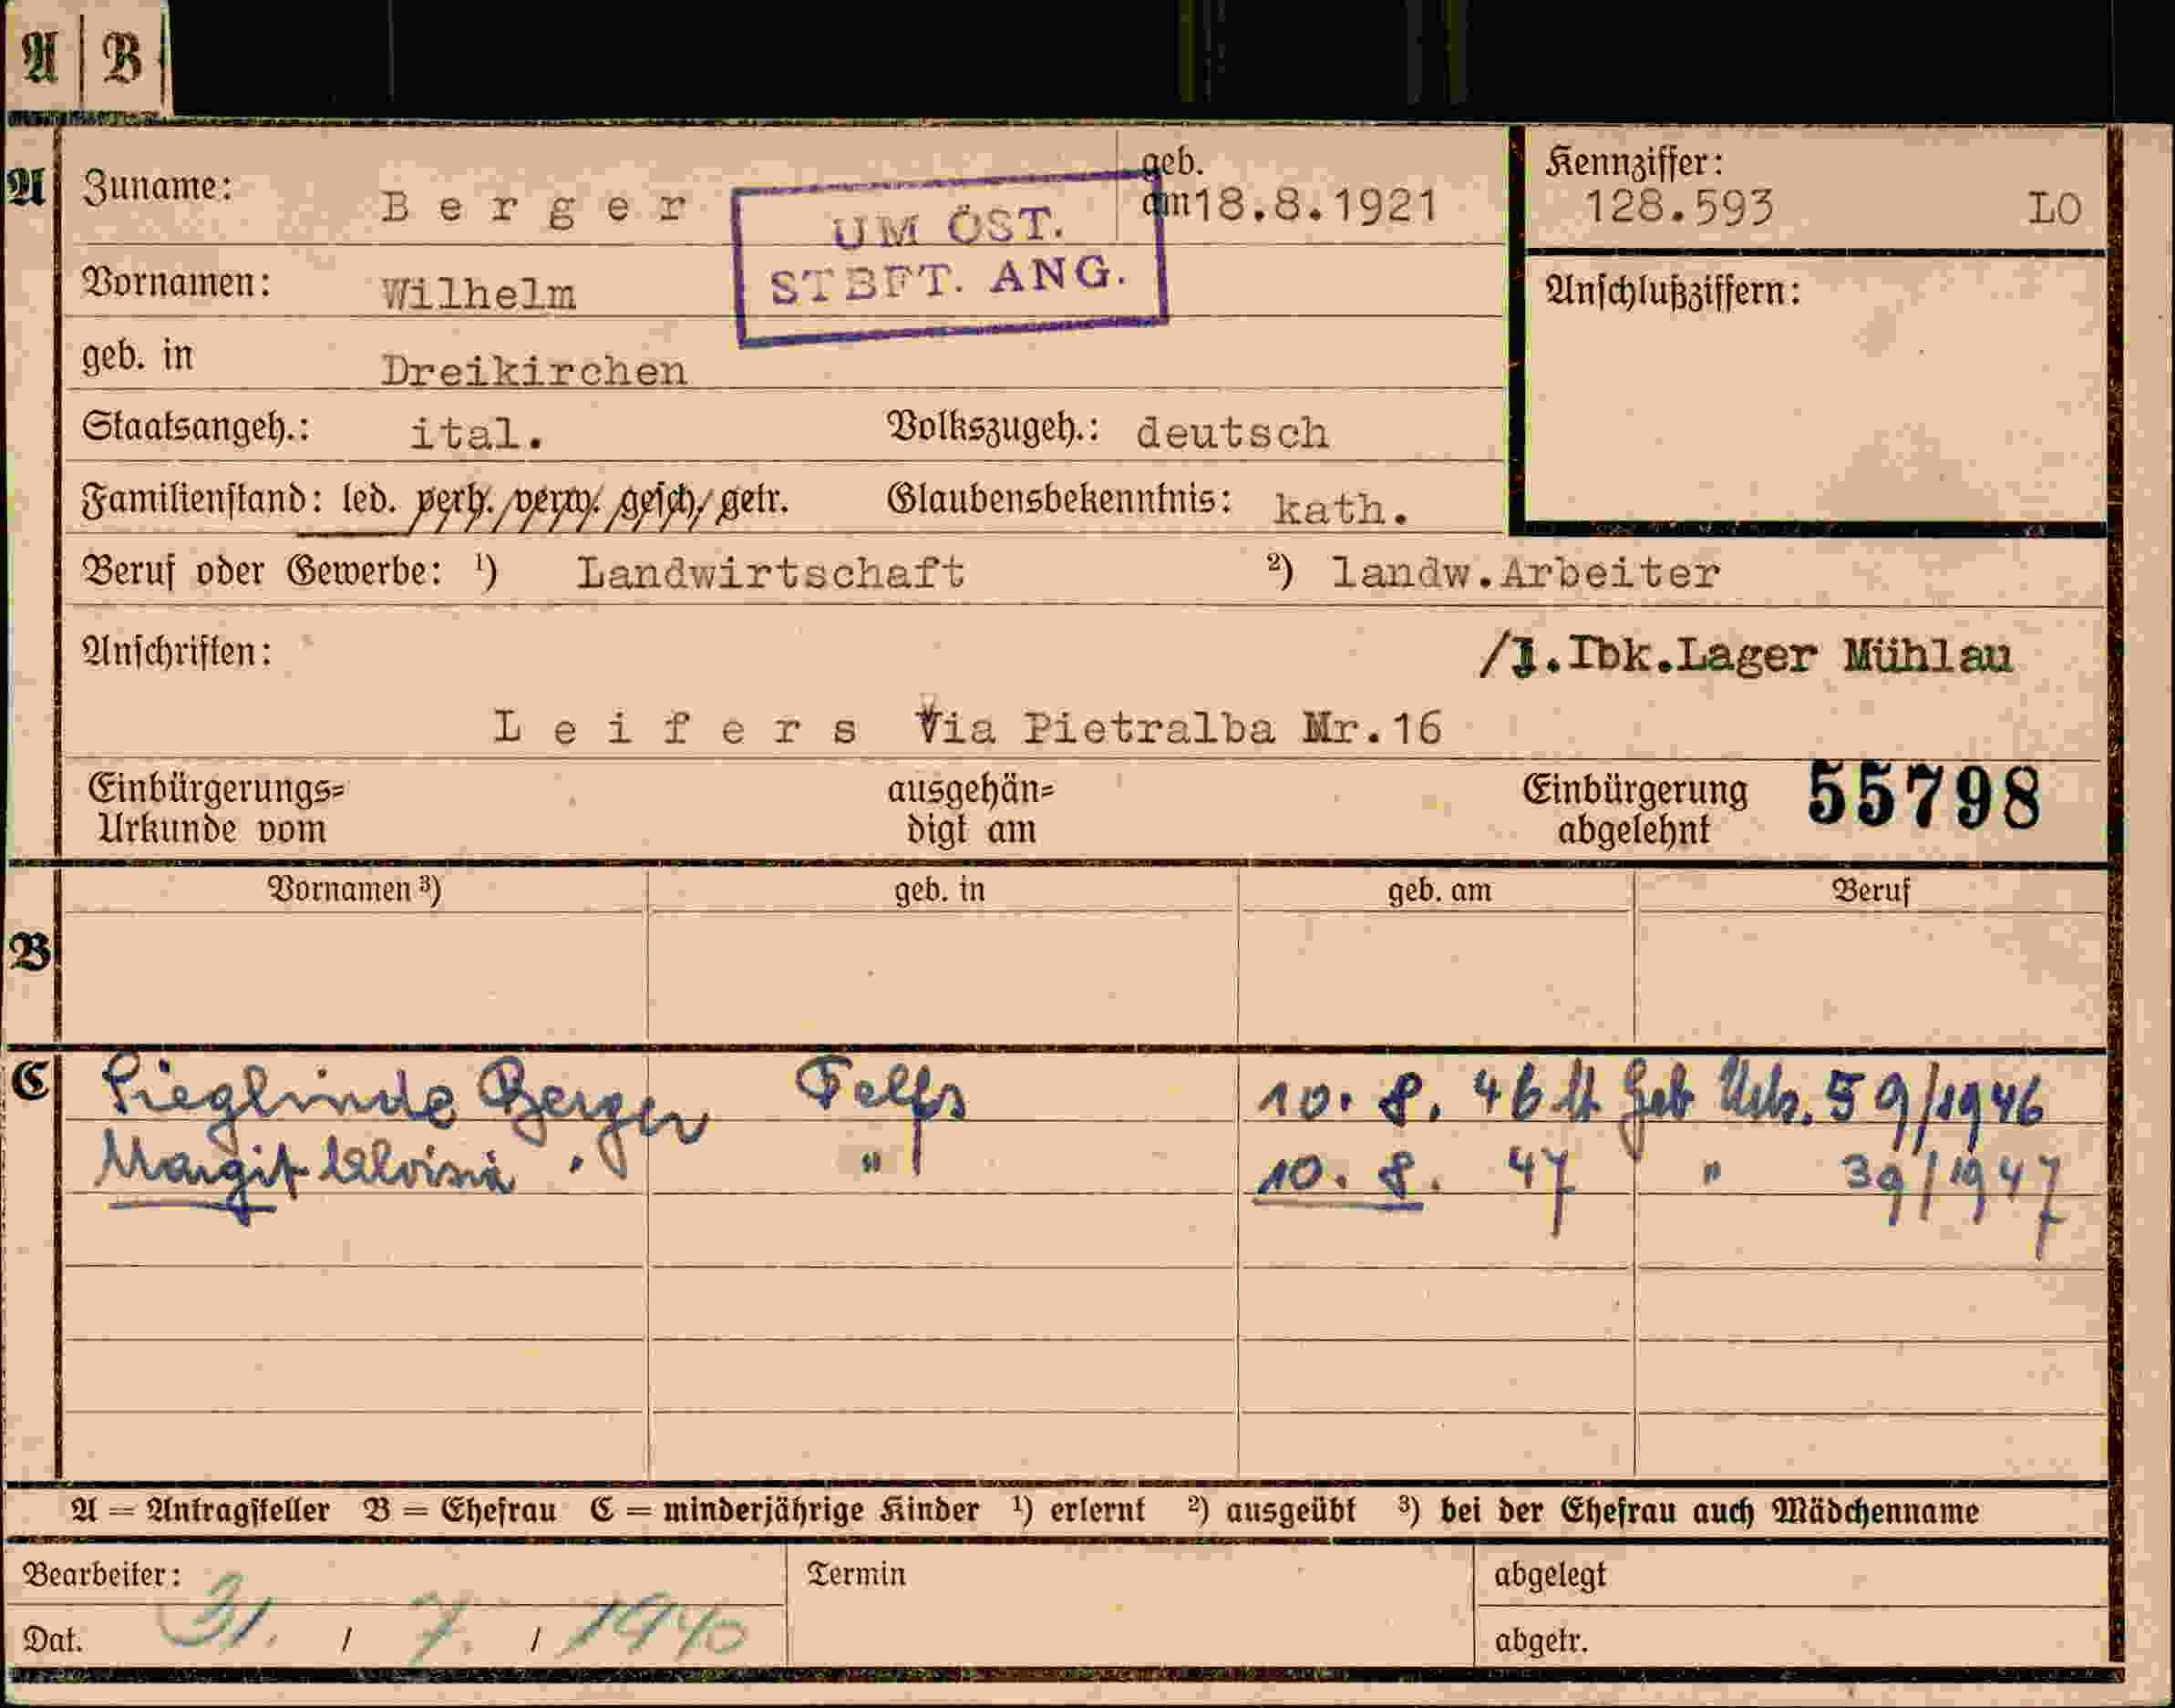 A B
A Zuname: Berger geb. am 18.8.1921 Kennziffer: 128.593 LO
UM ÖST.
STBFT. ANG.
Vornamen: Wilhelm Anschlußziffern:
geb. in Dreikirchen
Staatsangeh.: ital. Volkszugeh.: deutsch
Familienstand: led. verh./verw./gesch./getr. Glaubensbekenntnis: kath.
Beruf oder Gewerbe: ¹) Landwirtschaft ²) landw.Arbeiter
Anschriften: /J.Ibk.Lager Mühlau
Leifers Via Pietralba Nr.16
Einbürgerungs= ausgehän= Einbürgerung 55798
Urkunde vom digt am abgelehnt
Vornamen ³) geb. in geb. am Beruf
B
C Sieglinde Berger Telfs 10. 8. 46 lt Geb Urk. 59/1946
Margit Aloisia " " 10. 8. 47 " 39/1947
A = Antragsteller B = Ehefrau C = minderjährige Kinder ¹) erlernt ²) ausgeübt ³) bei der Ehefrau auch Mädchenname
Bearbeiter: Termin abgelegt
Dat. 31. / 7. / 1940 abgetr.